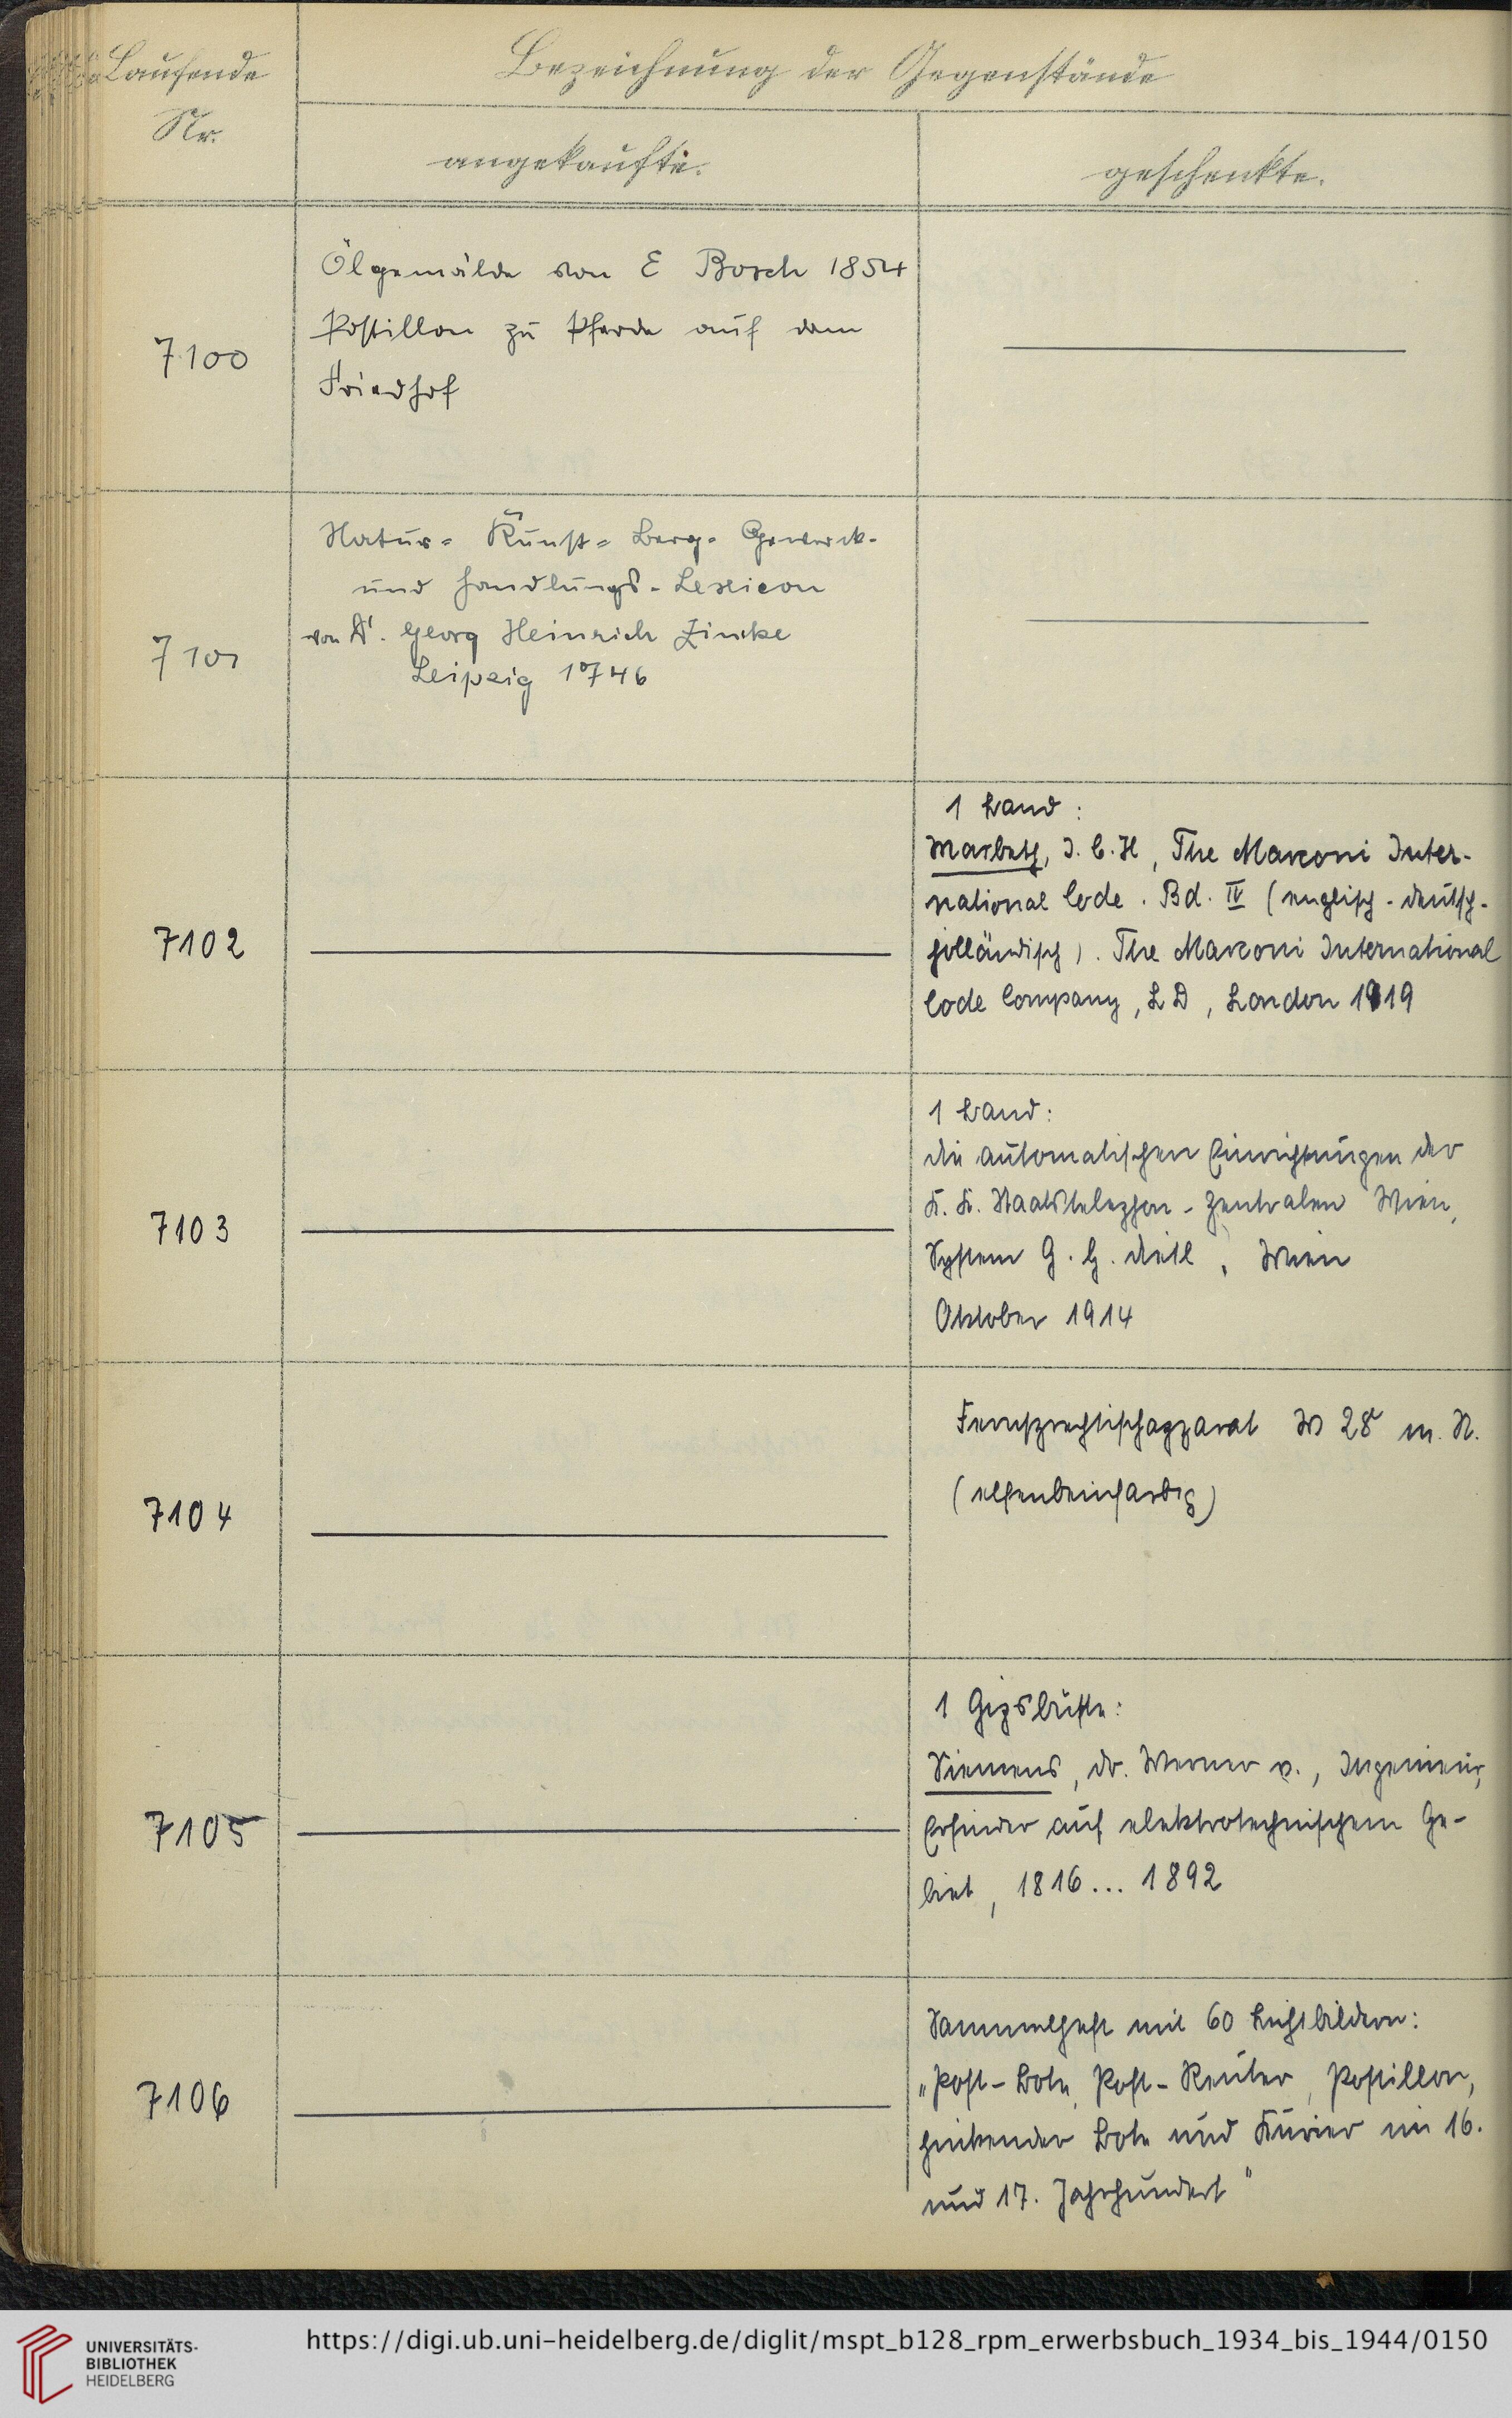 Laufende
Nr.
Bezeichnung der Gegenstände
angekaufte.
geschenkte.
7100
Ölgemälde von E Bosch 1854
Postillon zu Pferde auf dem
Friedhof
7101
Natur= Kunst= Berg- Gewerck-
und Handlungs-Lexicon
von Dr. Georg Heinrich Zincke
Leipzig 1746
7102
1 Band:
Marbeth, J. C. H, The Marconi Inter-
national Code. Bd. IV (englisch-deutsch-
holländisch). The Marconi International
Code Company, LD, London 1919
7103
1 Band:
Die automatischen Einrichtungen der
K. K. Staatstelephon-Zentralen Wien,
System G. G. Dietl, Wien
Oktober 1914
7104
Fernsprechtischapparat W 28 m. N.
(elfenbeinfarbig)
7105
1 Gipsbüste:
Siemens, Dr. Werner v., Ingenieur,
Erfinder auf elektrotechnischem Ge-
biet, 1816... 1892
7106
Sammelheft mit 60 Lichtbildern:
„Post-Bote, Post-Reuter, Postillon,
hinkender Bote und Kurier im 16.
und 17. Jahrhundert"
UNIVERSITÄTS-
BIBLIOTHEK
HEIDELBERG
https://digi.ub.uni-heidelberg.de/diglit/mspt_b128_rpm_erwerbsbuch_1934_bis_1944/0150